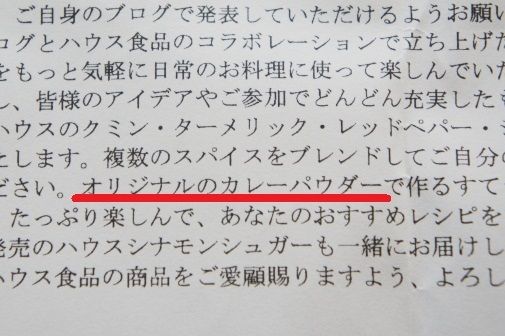 ご自身のブログで発表していただけるようお願い
ログとハウス食品のコラボレーションで立ち上げた
をもっと気軽に日常のお料理に使って楽しんでいた
し、皆様のアイデアやご参加でどんどん充実したも
ハウスのクミン・ターメリック・レッドペパー・
とします。複数のスパイスをブレンドしてご自分の
ださい。オリジナルのカレーパウダーで作るすて
、たっぷり楽しんで、あなたのおすすめレシピを
発売のハウスシナモンシュガーも一緒にお届けし
ハウス食品の商品をご愛顧賜りますよう、よろし